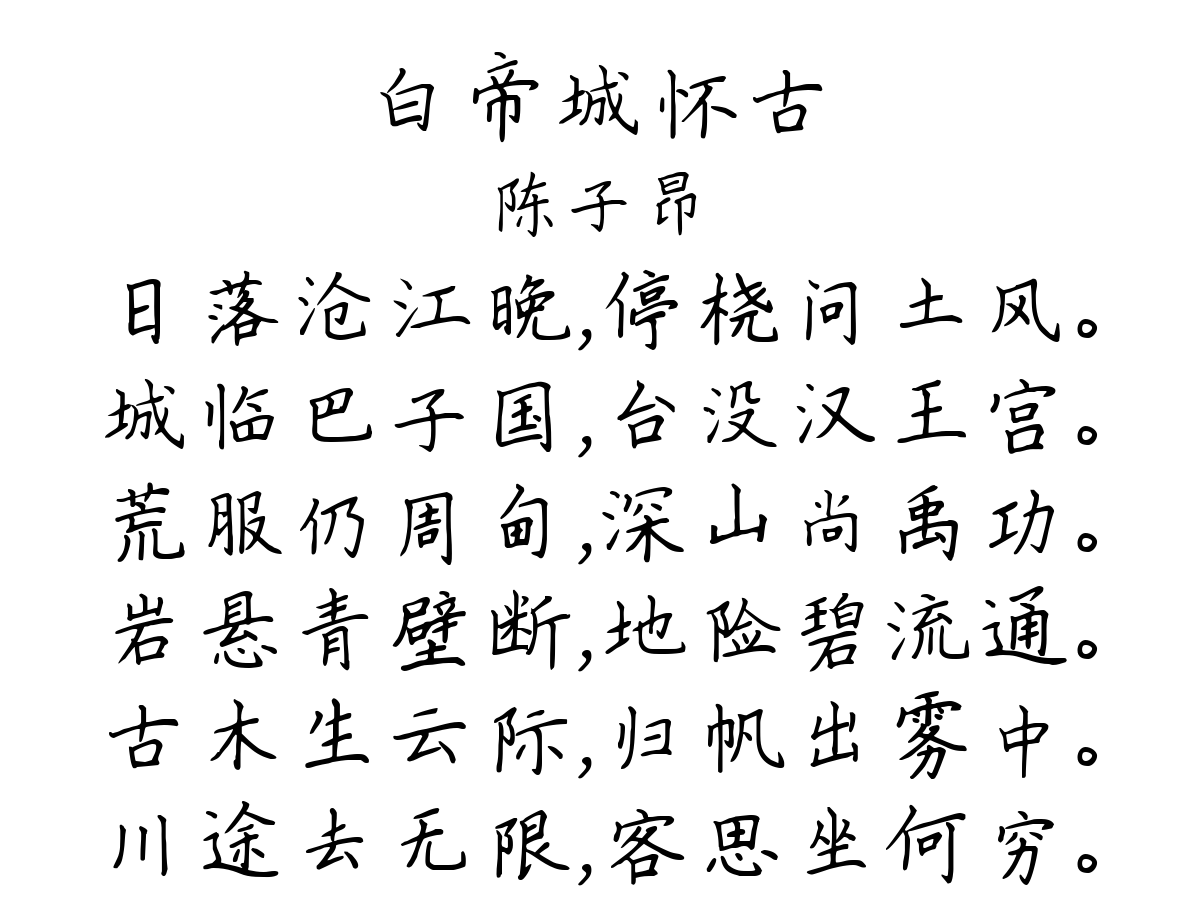 白帝城怀古
陈子昂
日落沧江晚,停桡问土风。
城临巴子国,台没汉王宫。
荒服仍周甸,深山尚禹功。
岩悬青壁断,地险碧流通。
古木生云际,归帆出雾中。
川途去无限,客思坐何穷。